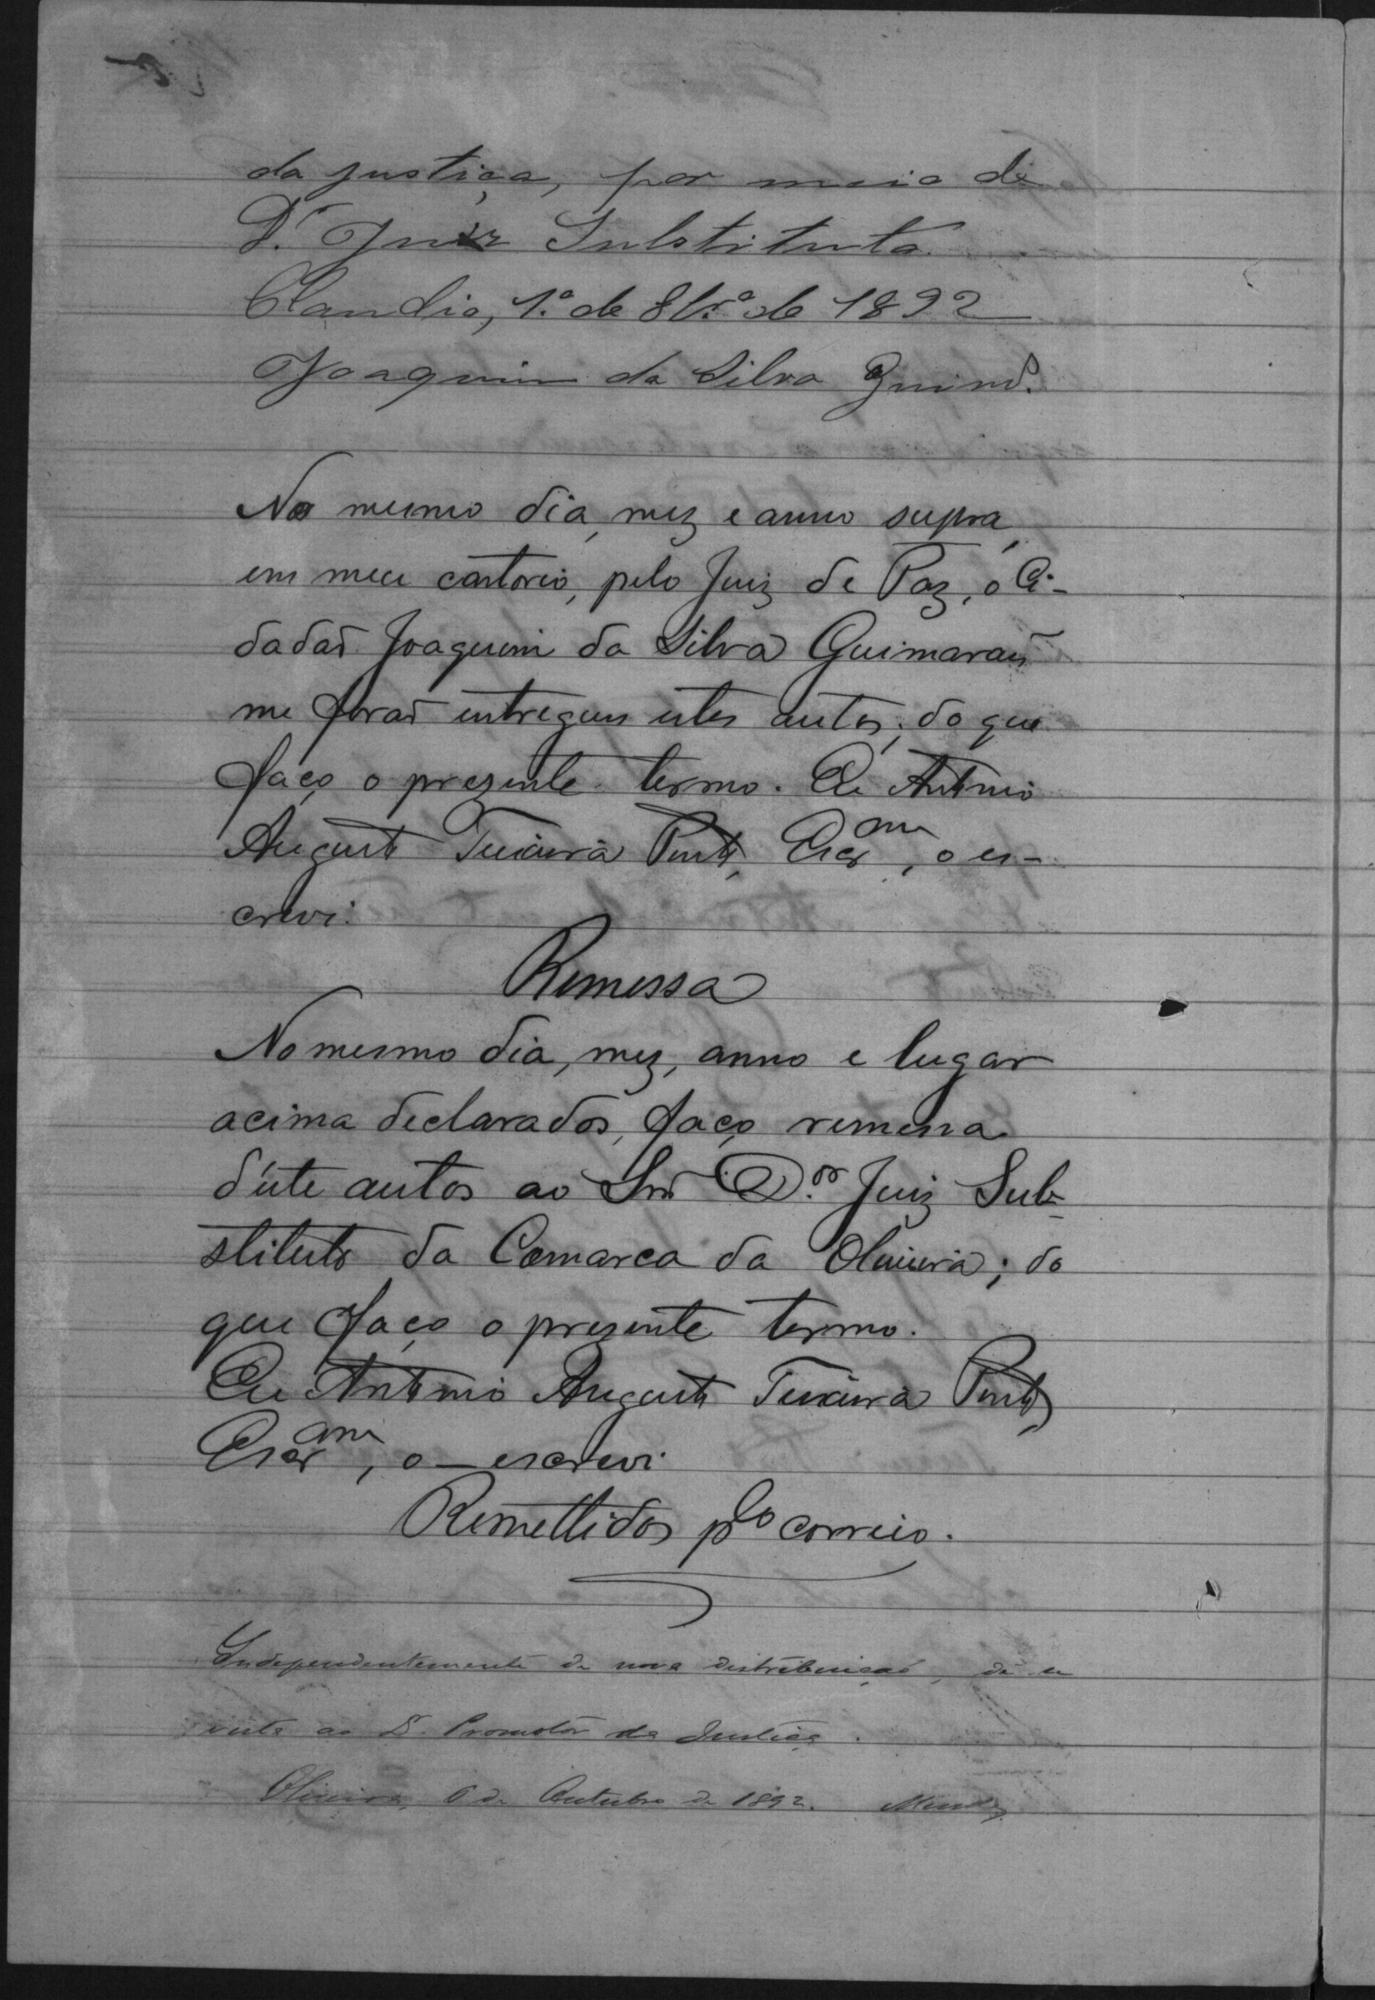 da justiça, por meio do
Dr. Juiz Substituto.
Claudio, 1.º de 8br.º de 1892
Joaquim da Silva Guimes.
No mesmo dia, mez e anno supra,
em meu cartorio, pelo Juiz de Paz, o Ci-
dadão Joaquim da Silva Guimarães
me forão entregues estes autos; do que
faço o prezente termo. Eu Antonio
Augusto Teixeira Pinto, Escram, o es-
crevi.
Remessa
No mesmo dia, mez, anno e lugar
acima declarados, faço remessa
d'este autos ao Snr Dor. Juiz Sub-
stituto da Comarca da Oliveira; do
que faço o prezente termo.
Eu Antonio Augusto Teixeira Pinto,
Escram, o escrevi.
Remettidos plo correio.
Independentemente de nova distribuição, dê-se
vista ao Dr. Promotor da Justiça.
Oliveira, 6 de Outubro de 1892.